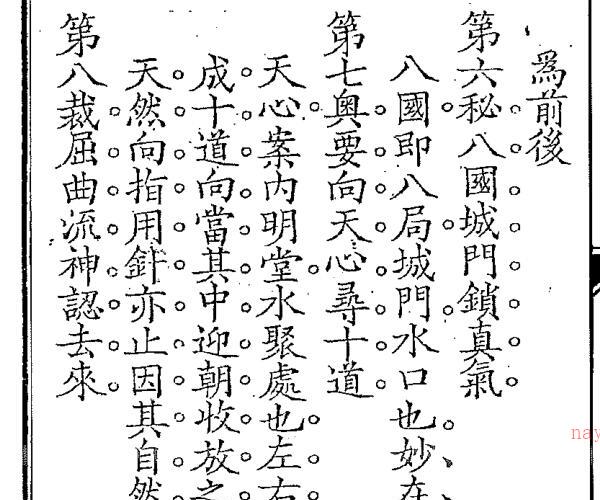 爲前後
第六秘八國城門鎖真氣
八國即八局城門水口也妙在
第七奧要向天心尋十道
天心案內明堂水聚處也左右
成十道向當其中迎朝收放之
天然向指用針亦止因其自然
第八裁屈曲流神認去來
nay